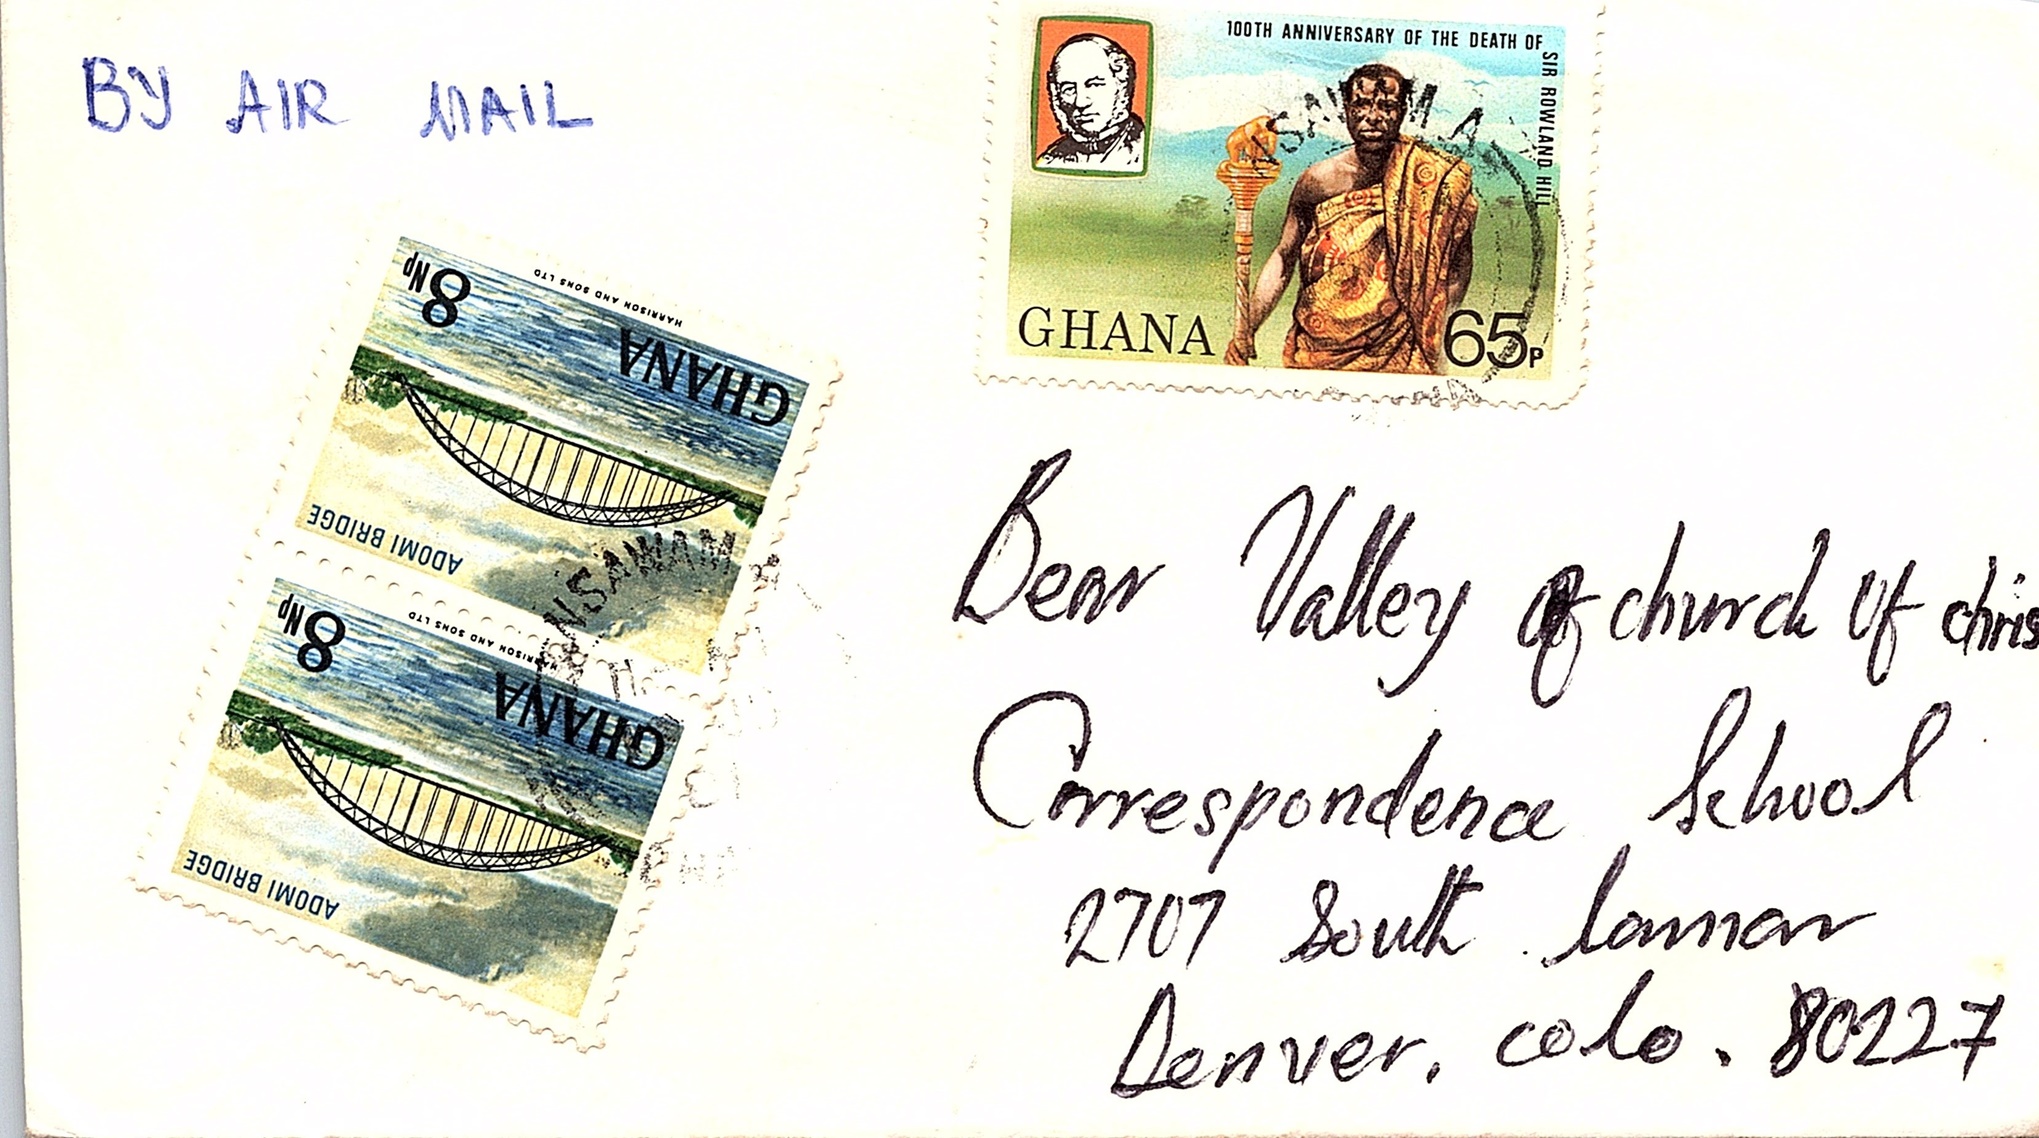 BY AIR MAIL
100TH ANNIVERSARY OF THE DEATH OF
SIR ROWLAND HILL
GHANA 65p
NSAWAM
8Np
HARRISON AND SONS LTD
GHANA
ADOMI BRIDGE
NSAWAM
8Np
HARRISON AND SONS LTD
GHANA
ADOMI BRIDGE
Bear Valley of church of chris
Correspondence School
2707 South lamar
Denver, colo. 80227